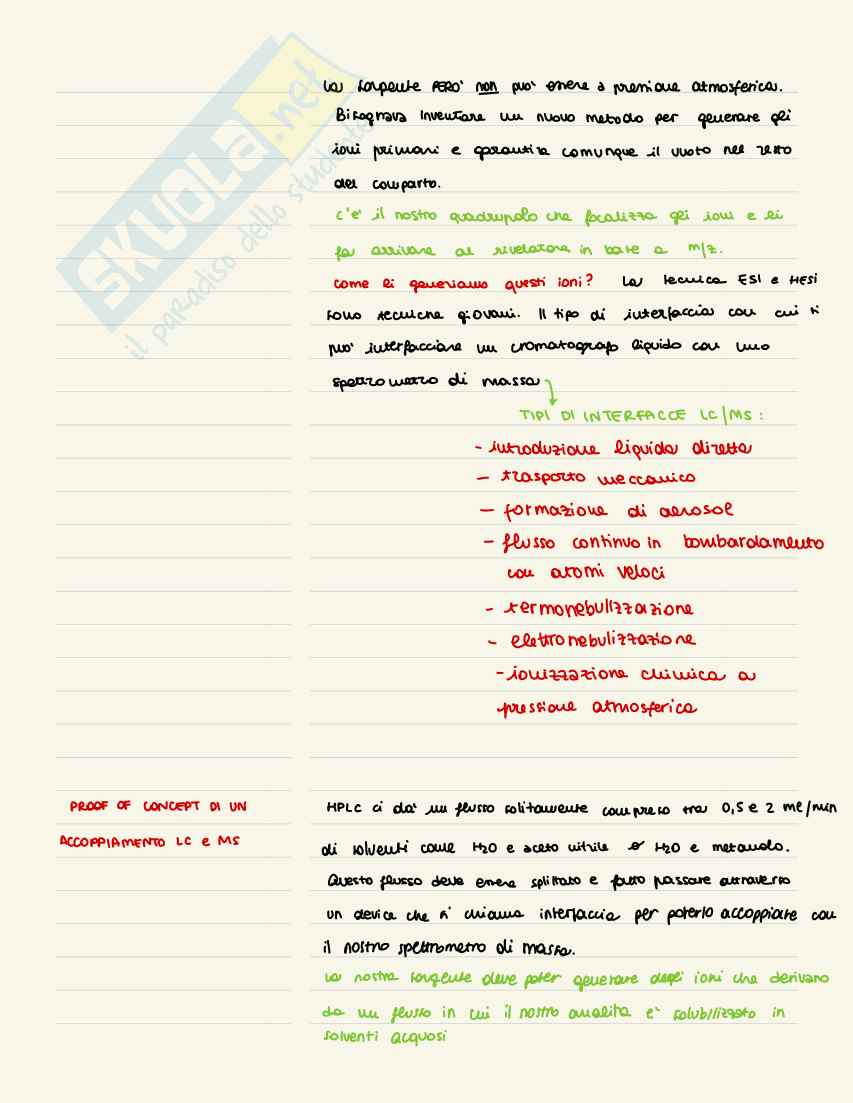 La sorgente PERO' non può essere a pressione atmosferica.
Bisognava inventare un nuovo metodo per generare gli
ioni primari e garantire comunque il vuoto nel resto
del comparto.
C'e' il nostro quadrupolo che focalizza gli ioni e li
fa arrivare al rivelatore in base a m/z.
come li generiamo questi ioni? La tecnica ESI e HESI
sono tecniche giovani. Il tipo di interfaccia con cui si
può interfacciare un cromatografo liquido con uno
spettrometro di massa
TIPI DI INTERFACCE LC/MS :
- introduzione liquida diretta
- trasporto meccanico
- formazione di aerosol
- flusso continuo in bombardamento
con atomi veloci
- termonebulizzazione
- elettronebulizzazione
- ionizzazione chimica a
pressione atmosferica
PROOF OF CONCEPT DI UN
ACCOPPIAMENTO LC e MS
HPLC ci da' un flusso solitamente compreso tra 0,5 e 2 ml/min
di solventi come H2O e aceto nitrile o H2O e metanolo.
Questo flusso deve essere splittato e fatto passare attraverso
un device che si chiama interfaccia per poterlo accoppiare con
il nostro spettrometro di massa.
La nostra sorgente deve poter generare degli ioni che derivano
da un flusso in cui il nostro analita e' solubilizzato in
solventi acquosi
SKUOLA.net
il paradiso dello studente